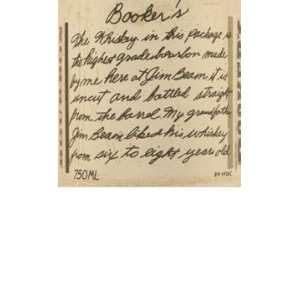 Booker's
The Whiskey in this package is
the highest grade bourbon made
by me here at Jim Beam it is
uncut and bottled straight
from the barrel My grandfather
Jim Beam liked his whiskey
from six to eight years old
750ML